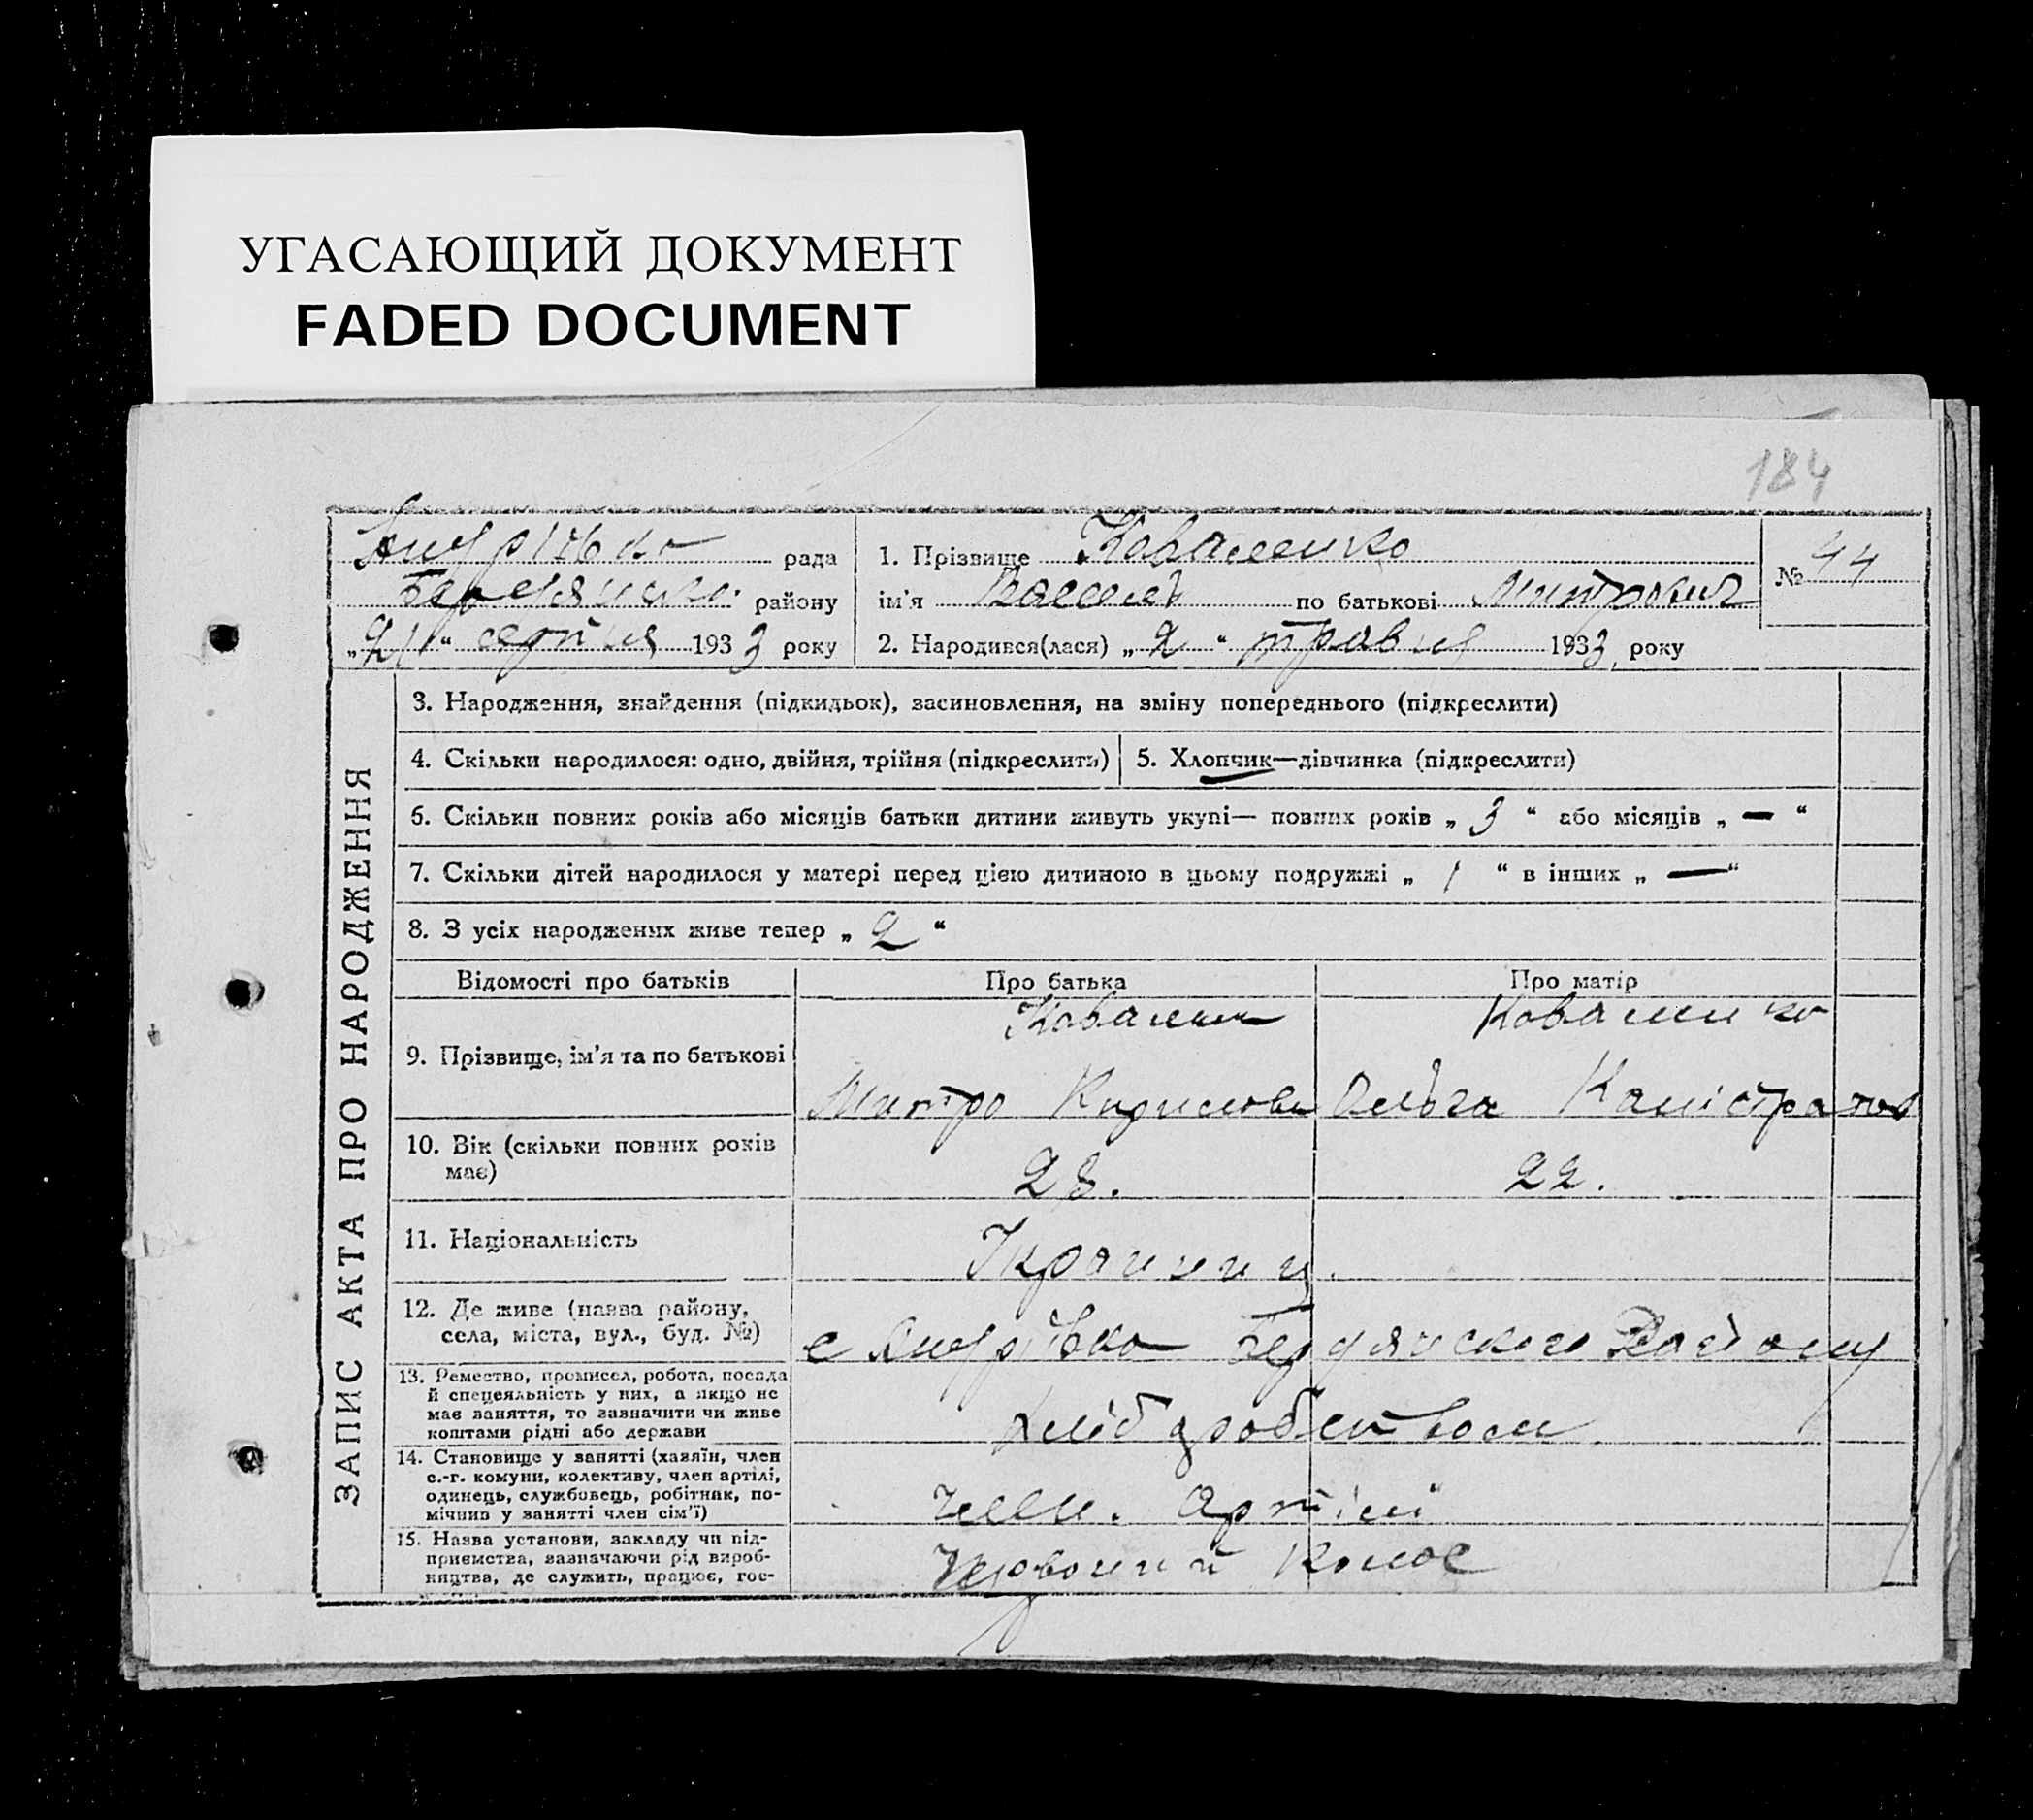 УГАСАЮЩИЙ ДОКУМЕНТ
FADED DOCUMENT
184
рада
Бердянсько. району
„21“ серпня 1933 року
1. Прізвище Коваленко
ім'я Василь по батькові Митрович
2. Народився(лася) „2“ травня 1933 року
№ 44
ЗАПИС АКТА ПРО НАРОДЖЕННЯ
3. Народження, знайдення (підкидьок), засиновлення, на зміну попереднього (підкреслити)
4. Скільки народилося: одно, двійня, трійня (підкреслить)
5. Хлопчик—дівчинка (підкреслити)
6. Скільки повних років або місяців батьки дитини живуть укупі— повних років „ 3 “ або місяців „ — “
7. Скільки дітей народилося у матері перед цією дитиною в цьому подружжі „ 1 “ в інших „ — “
8. З усіх народжених живе тепер „ 2 “
Відомості про батьків
Про батька
Про матір
9. Прізвище, ім'я та по батькові
Коваленко
Митро Кирилови
Коваленко
Ольга Калістратов
10. Вік (скільки повних років
має)
28.
22.
11. Національність
Українці.
12. Де живе (назва району,
села, міста, вул., буд. №)
с Бердянського Району
13. Ремество, промисел, робота, посада
й спецеяльність у них, а якщо не
має заняття, то зазначити чи живе
коштами рідні або держави
хліборобством
14. Становище у занятті (хазяїн, член
с.-г. комуни, колективу, член артілі,
одинець, службовець, робітник, по-
мічник у занятті член сім'ї)
член. артілі
15. Назва установи, закладу чи під-
приємства, зазначаючи рід вироб-
ництва, де служить, працює, гос-
Червоний Колос